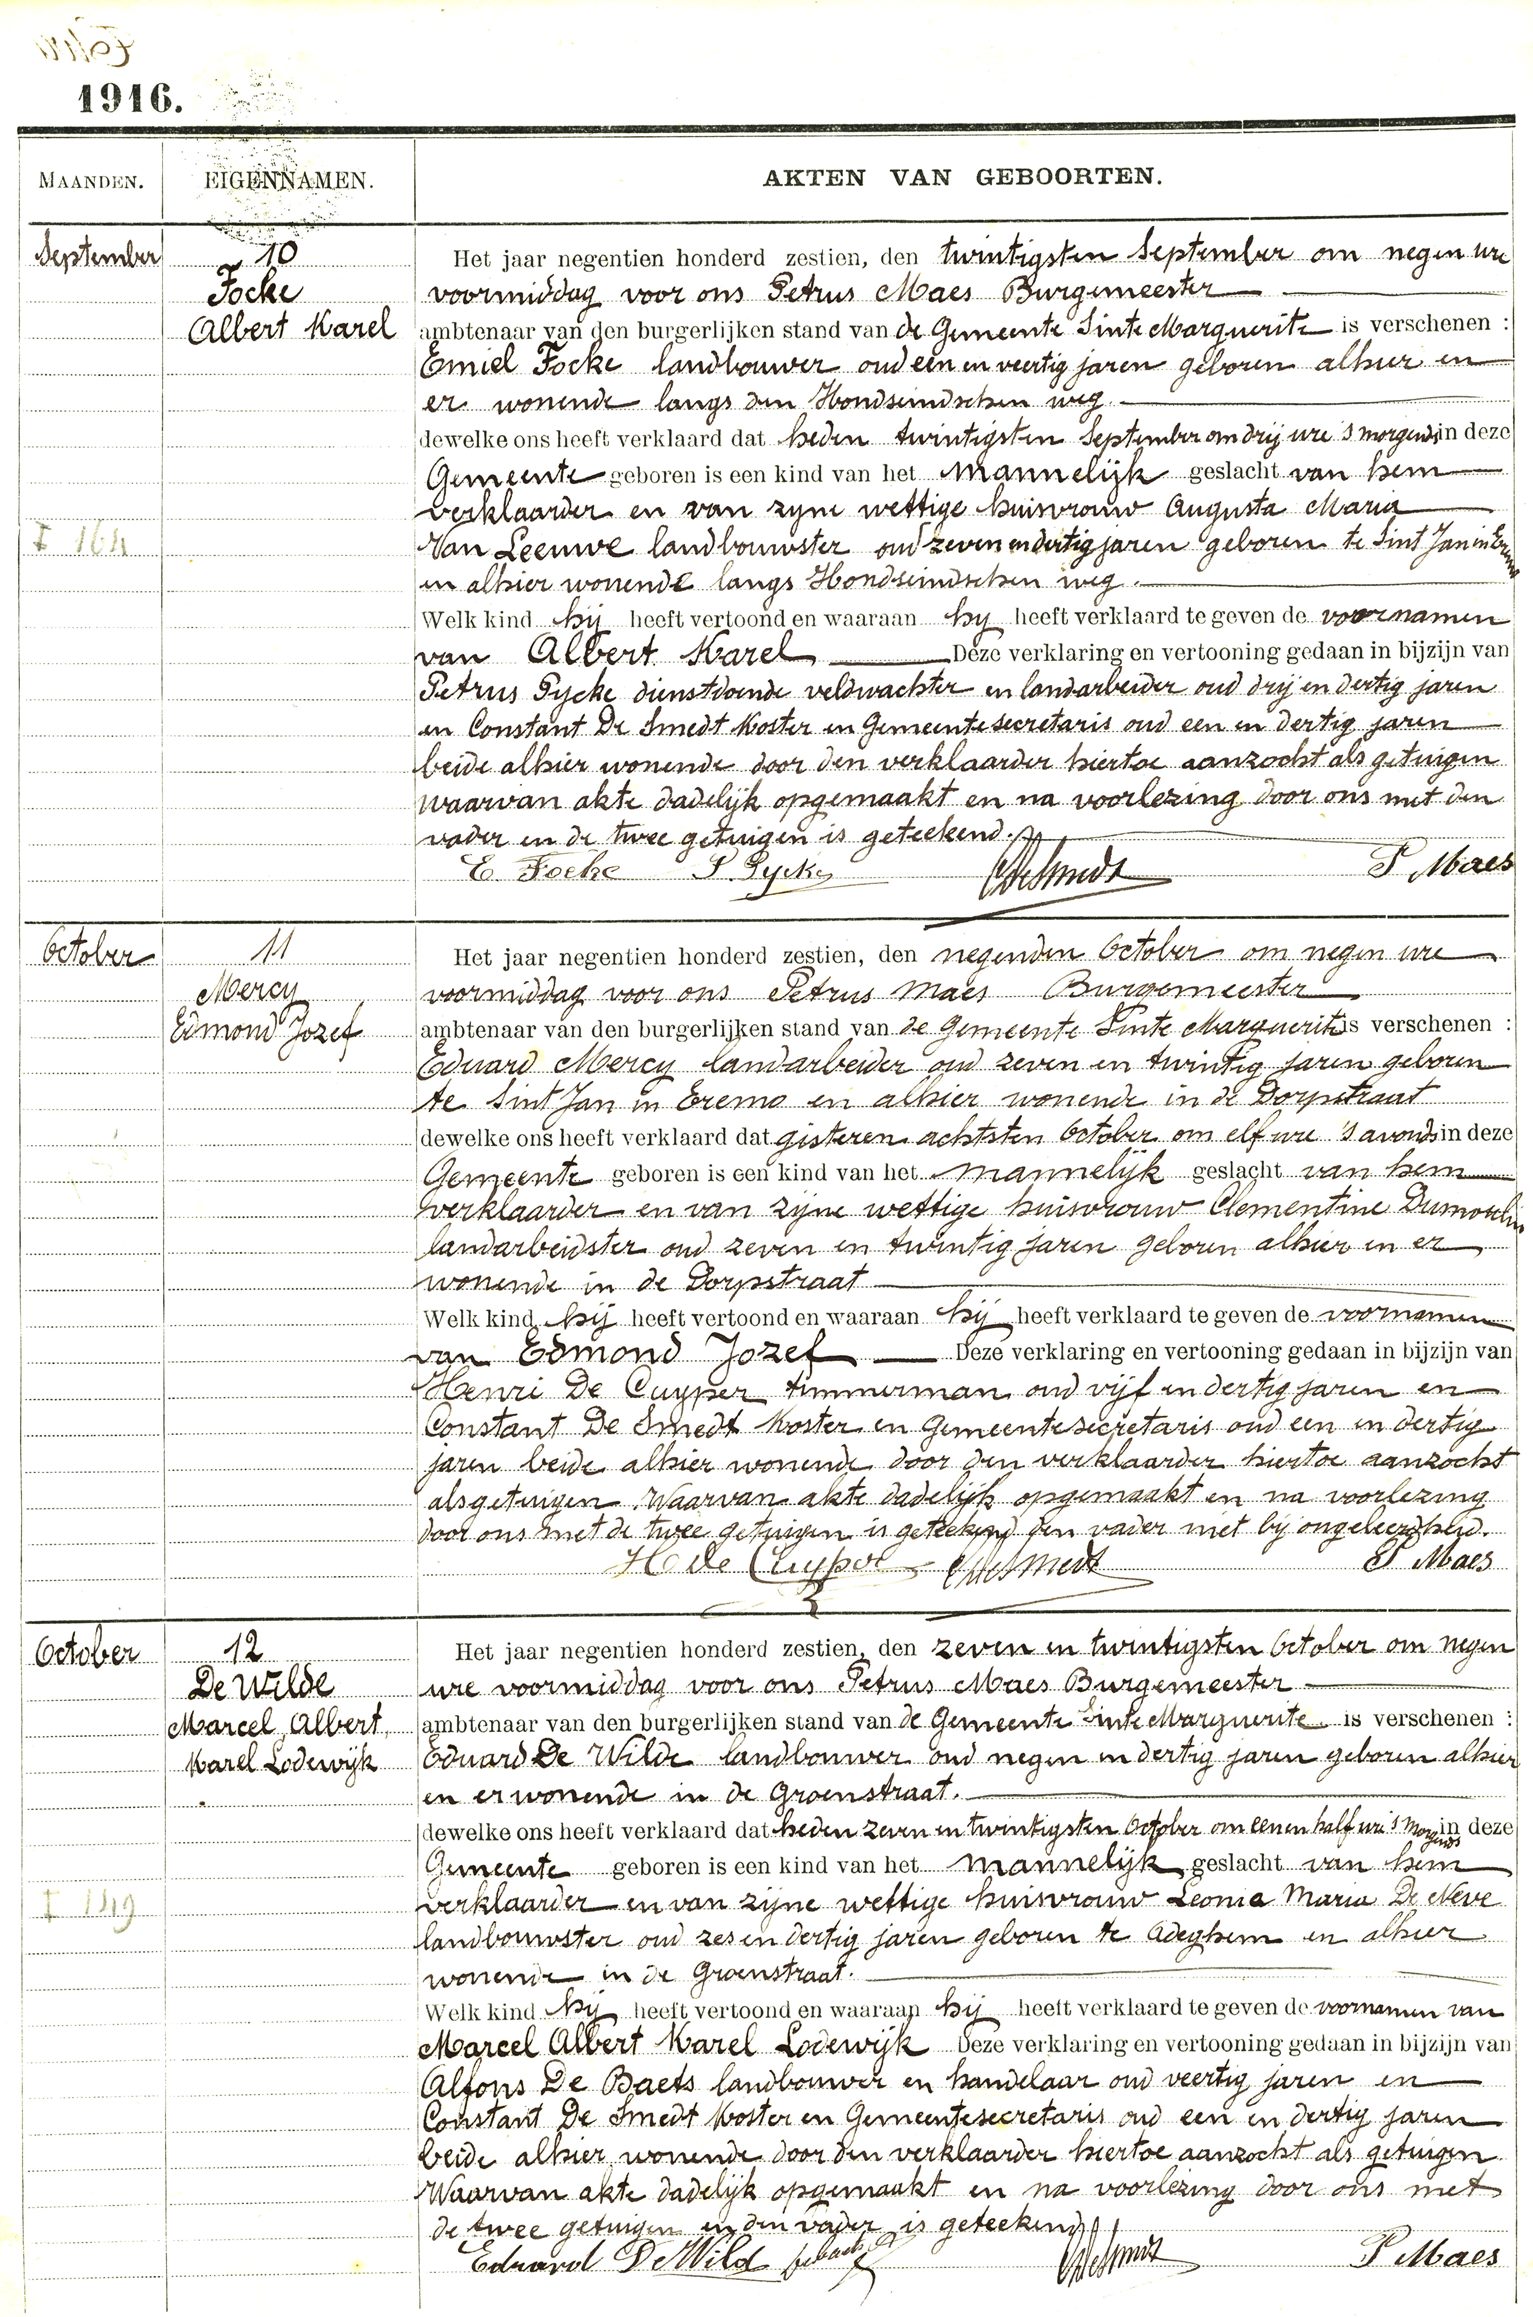 1916.
MAANDEN.
EIGENNAMEN.
AKTEN VAN GEBOORTEN.
September
10
Focke
Albert Karel
Het jaar negentien honderd zestien, den twintigsten September om negen ure
voormiddag voor ons Petrus Maes Burgemeester
ambtenaar van den burgerlijken stand van de Gemeente Sinte Marguerite is verschenen :
Emiel Focke landbouwer oud een en veertig jaren geboren alhier en
er wonende langs den Hondseindschen weg.
dewelke ons heeft verklaard dat heden twintigsten September om drij ure 's morgends in deze
Gemeente geboren is een kind van het mannelijk geslacht van hem
verklaarder en van zyne wettige huisvrouw Augusta Maria
Van Leeuwe landbouwster oud zeven en dertig jaren geboren te Sint Jan in Eremo
en alhier wonende langs Hondseindschen weg.
Welk kind hij heeft vertoond en waaraan hy heeft verklaard te geven de voornamen
van Albert Karel Deze verklaring en vertooning gedaan in bijzijn van
Petrus Pycke dienstdoende veldwachter en landarbeider oud drij en dertig jaren
en Constant De Smedt Koster en Gemeentesecretaris oud een en dertig jaren
beide alhier wonende door den verklaarder hiertoe aanzocht als getuigen
waarvan akte dadelijk opgemaakt en na voorlezing door ons met den
vader en de twee getuigen is geteekend.
E. Focke P. Pycke CDeSmedt P Maes
October
11
Mercy
Edmond Jozef
Het jaar negentien honderd zestien, den negenden October om negen ure
voormiddag voor ons Petrus Maes Burgemeester
ambtenaar van den burgerlijken stand van de Gemeente Sinte Marguerite is verschenen :
Eduard Mercy landarbeider oud zeven en twintig jaren geboren
te Sint Jan in Eremo en alhier wonende in de Dorpstraat
dewelke ons heeft verklaard dat gisteren achtsten October om elf ure 's avonds in deze
Gemeente geboren is een kind van het mannelijk geslacht van hem
verklaarder en van zijne wettige huisvrouw Clementine
landarbeidster oud zeven en twintig jaren geboren alhier en er
wonende in de Dorpsstraat
Welk kind hij heeft vertoond en waaraan hij heeft verklaard te geven de voornamen
van Edmond Jozef Deze verklaring en vertooning gedaan in bijzijn van
Henri De Cuyper timmerman oud vijf en dertig jaren en
Constant De Smedt Koster en Gemeentesecretaris oud een en dertig
jaren beide alhier wonende door den verklaarder hiertoe aanzocht
als getuigen. Waarvan akte dadelijk opgemaakt en na voorlezing
door ons met de twee getuigen is geteekend den vader niet bij ongeleerdheid.
H de Cuyper CDeSmedt P Maes
October
12
De Wilde
Marcel Albert
Karel Lodewijk
Het jaar negentien honderd zestien, den zeven en twintigsten October om negen
ure voormiddag voor ons Petrus Maes Burgemeester
ambtenaar van den burgerlijken stand van de Gemeente Sinte Marguerite is verschenen :
Eduard De Wilde landbouwer oud negen en dertig jaren geboren alhier
en er wonende in de Groenstraat.
dewelke ons heeft verklaard dat heden zeven en twintigsten October om een en half ure 's morgends in deze
Gemeente geboren is een kind van het mannelijk geslacht van hem
verklaarder en van zijne wettige huisvrouw Leonia Maria De Neve
landbouwster oud zes en dertig jaren geboren te Adeghem en alhier
wonende in de Groenstraat.
Welk kind hij heeft vertoond en waaraan hij heeft verklaard te geven de voornamen van
Marcel Albert Karel Lodewijk Deze verklaring en vertooning gedaan in bijzijn van
Alfons De Baets landbouwer en handelaar oud veertig jaren en
Constant De Smedt Koster en Gemeentesecretaris oud een en dertig jaren
beide alhier wonende door den verklaarder hiertoe aanzocht als getuigen.
Waarvan akte dadelijk opgemaakt en na voorlezing door ons met
de twee getuigen en den vader is geteekend
Eduard De Wild CDeSmedt P Maes